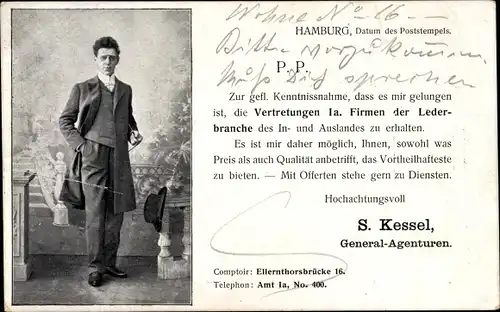 Wohne No 16 —
HAMBURG, Datum des Poststempels.
Bitte vorzukommen
P. P.
Muß Dich sprechen
Zur gefl. Kenntnissnahme, dass es mir gelungen
ist, die Vertretungen Ia. Firmen der Leder-
branche des In- und Auslandes zu erhalten.
Es ist mir daher möglich, Ihnen, sowohl was
Preis als auch Qualität anbetrifft, das Vortheilhafteste
zu bieten. — Mit Offerten stehe gern zu Diensten.
Hochachtungsvoll
S. Kessel,
General-Agenturen.
Comptoir: Ellernthorsbrücke 16.
Telephon: Amt Ia, No. 400.